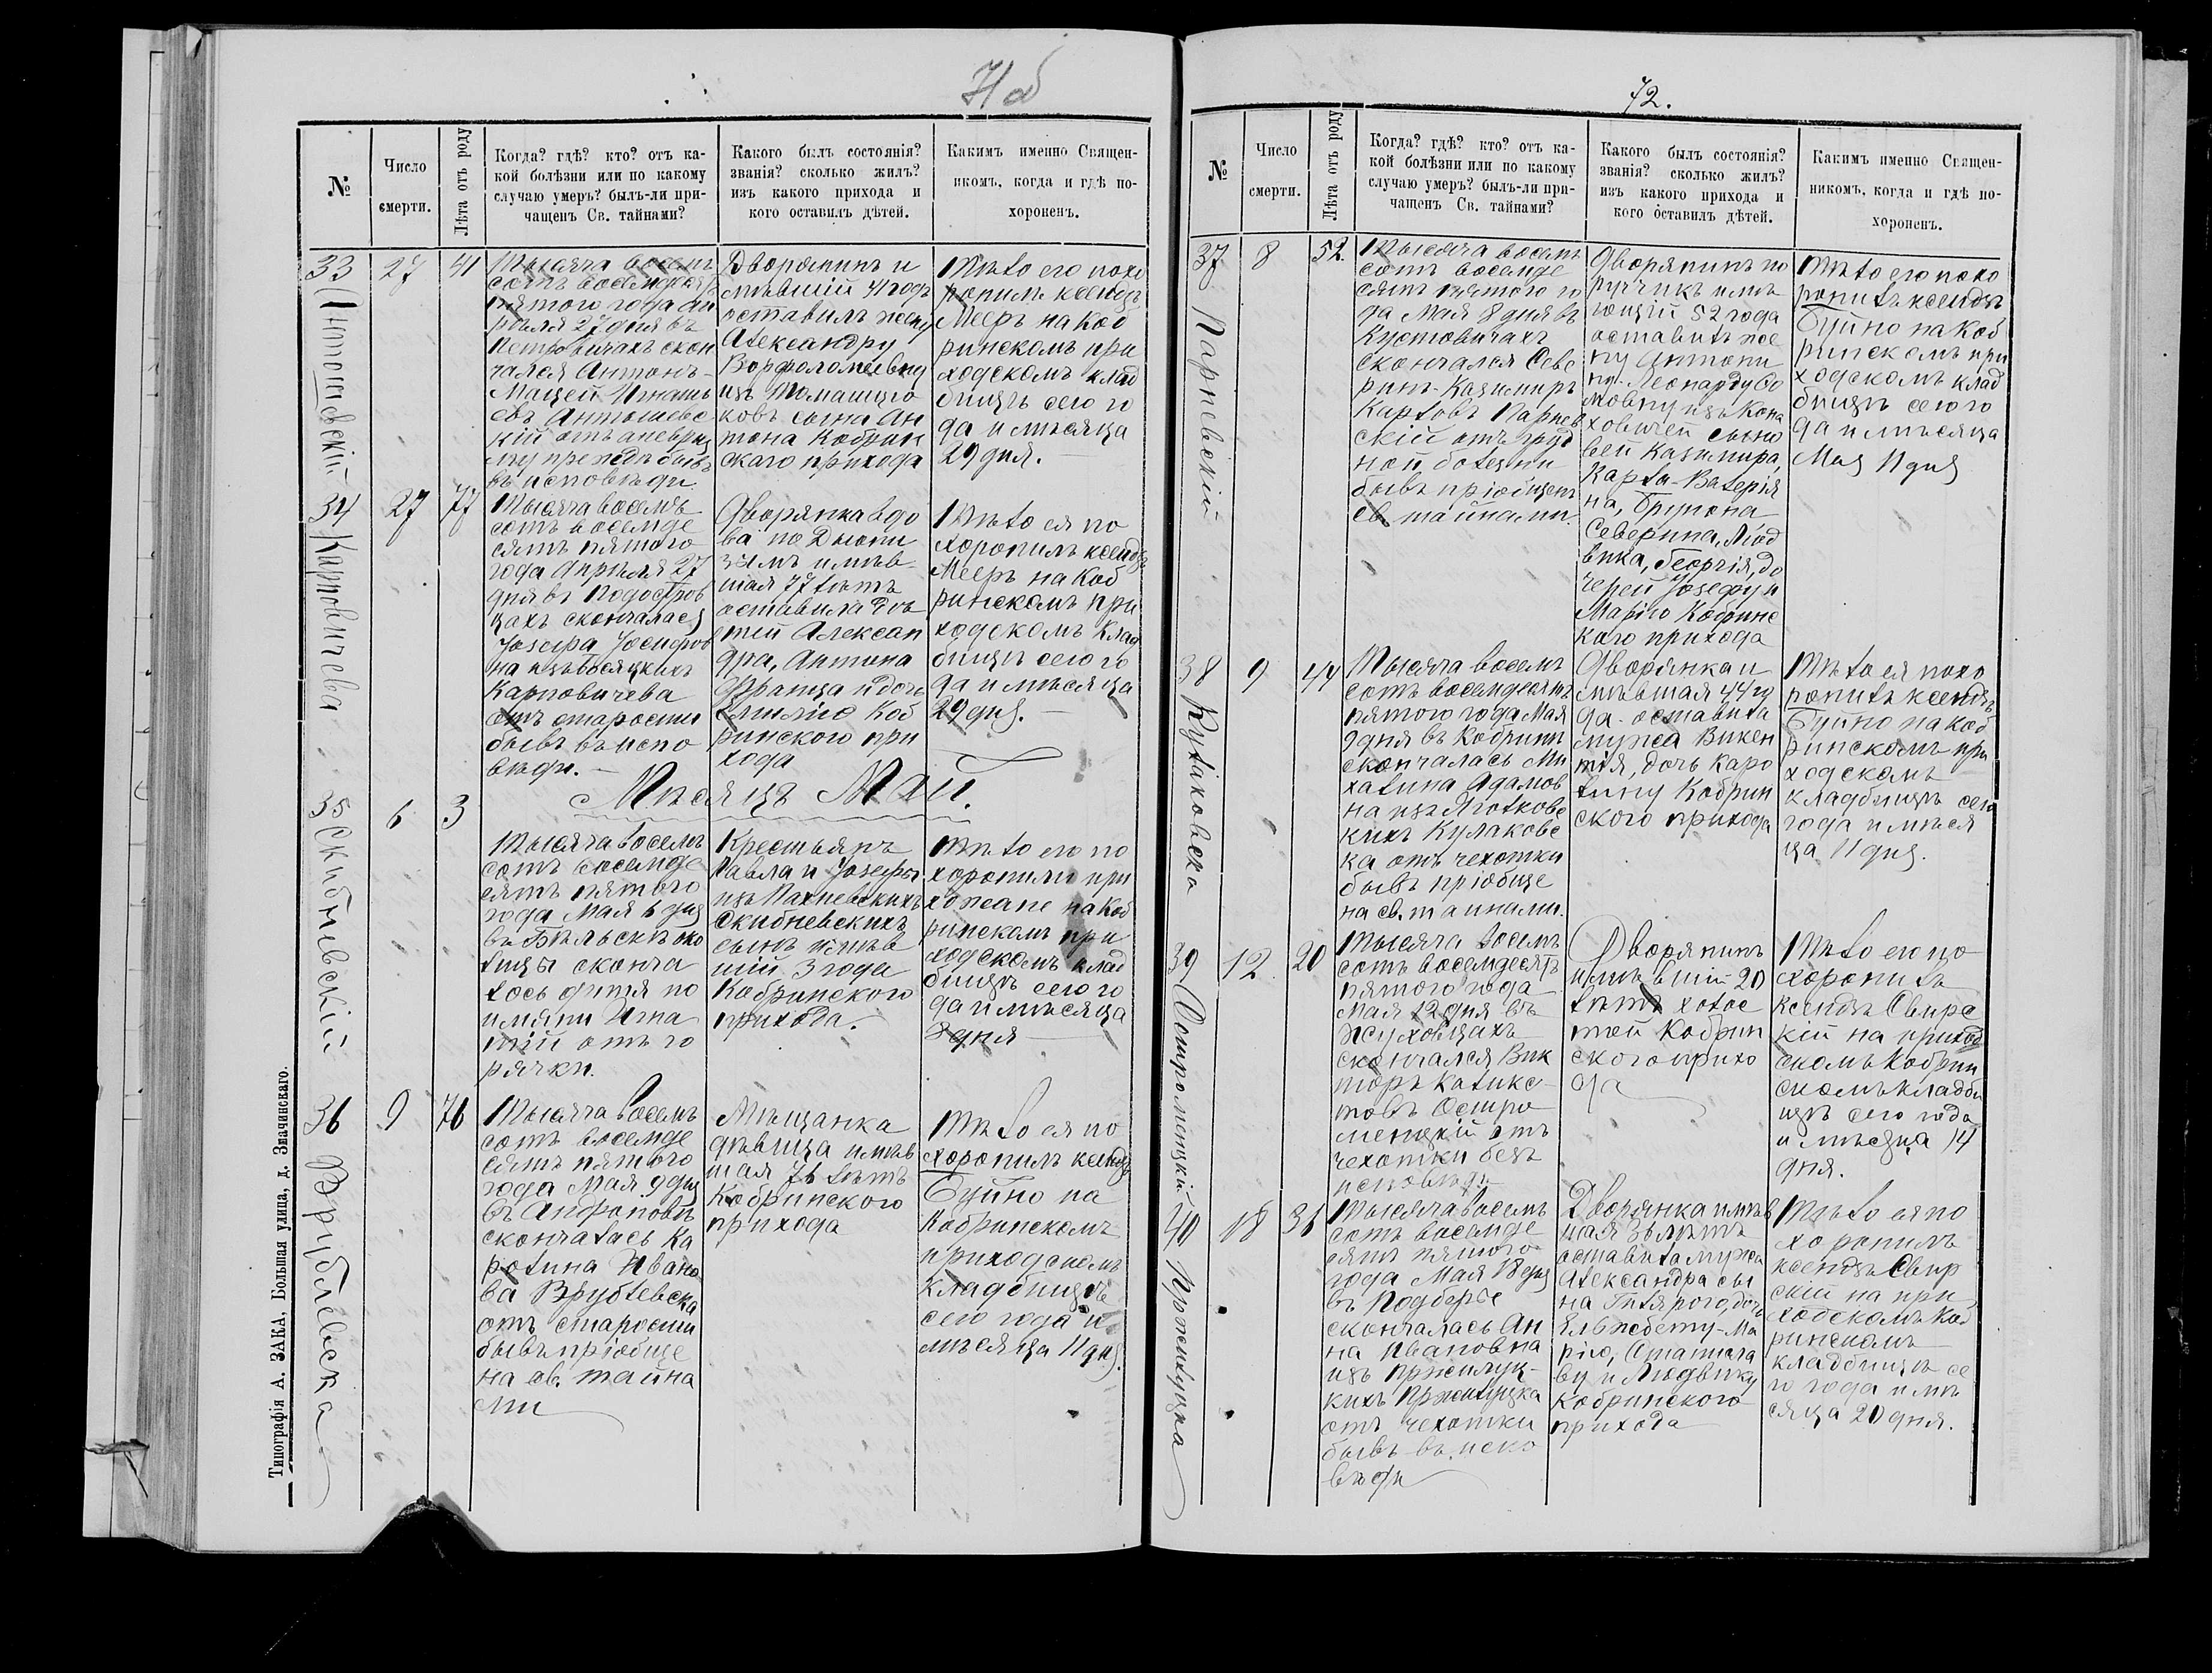 71 об
№
Число
смерти.
Лѣта отъ роду
Когда? гдѣ? кто? отъ ка-
кой болѣзни или по какому
случаю умеръ? былъ-ли при-
чащенъ Св. тайнами?
Какого былъ состоянія?
званія? сколько жилъ?
изъ какого прихода и
кого оставилъ дѣтей.
Какимъ именно Священ-
никомъ, когда и гдѣ по-
хороненъ.
33
27
41
Тысяча восемь
сотъ восемдесятъ
пятого года Ап
рѣля 27 дня въ
Петровичахъ скон
чался Антонъ-
Мацей Игнать
евъ
кій отъ аневриз
му прежде бывъ
въ исповѣди.
Дворянинъ и
мѣвшій 41 годъ
оставилъ жену
Александру
Ворфоломеевну
изъ Томашиго
ковъ сына Ан
тона Кобрин
скаго прихода
Тѣло его похо
ронилъ ксендзъ
Мееръ на Коб
ринскомъ при
ходскомъ клад
бищѣ сего го
да и мѣсяца
29 дня.
34 Карповичева
27
77
Тысяча восемь
сотъ восемде
сятъ пятого
года Апрѣля 27
дня въ Подостров
цахъ скончалась
Јозефа Јосифов
на изъ
Карповичева
отъ старости
бывъ въ испо
вѣди.
Дворянка вдо
ва по Діони
зымъ имѣв
шая 77 лѣтъ
оставила дѣ
тей Алексан
дра, Антона
Франца и дочь
Эмилію Коб
ринского при
хода
Тѣло ея по
хоронилъ ксендзъ
Мееръ на Коб
ринскомъ при
ходскомъ клад
бищѣ сего го
да и мѣсяца
29 дня.
Мѣсяцъ Май.
35 Скибневскій
6
3
Тысяча восемь
сотъ восемде
сятъ пятого
года Мая 6 дня
въ Бѣльскѣ око
лицы сконча
лось дитя по
имяни Игна
тій отъ го
рячки.
Крестьянъ
Павла и Јозефы
изъ Пахневскихъ
Скибневскихъ
сынъ имѣв
шій 3 года
Кобринского
прихода.
Тѣло его по
хоронили при
хожане на Коб
ринскомъ при
ходскомъ клад
бищѣ сего го
да и мѣсяца
8 дня
36 Врублевска
9
76
Тысяча восемь
сотъ восемде
сятъ пятого
года Мая 9 дня
въ Андроновѣ
скончалась Ка
ролина Ивано
ва Врублевска
отъ старости
бывъ пріобще
на св. тайна
ми
Мѣщанка
дѣвица имѣв
шая 76 лѣтъ
Кобринского
прихода
Тѣло ея по
хоронилъ ксендзъ
Буйно на
Кобринскомъ
приходскомъ
кладбищѣ
сего года и
мѣсяца 11 дня
Типографія А. ЗАКА, Большая улица, д. Значинскаго.
72.
№
Число
смерти.
Лѣта отъ роду
Когда? гдѣ? кто? отъ ка-
кой болѣзни или по какому
случаю умеръ? былъ-ли при-
чащенъ Св. тайнами?
Какого былъ состоянія?
званія? сколько жилъ?
изъ какого прихода и
кого оставилъ дѣтей.
Какимъ именно Священ-
никомъ, когда и гдѣ по-
хороненъ.
37 Парневскій
8
52.
Тысяча восемь
сотъ восемде
сятъ пятого го
да Мая 8 дня въ
Кустовичахъ
скончался Севе
ринъ-Казимиръ
Карловъ Парнев
скій отъ груд
ной болезни
бывъ пріобщенъ
св. тайнами.
Дворянинъ по
ручикъ имѣ
ющій 52 года
оставилъ же
ну Антони
ну-Леонарду До
мовну изъ Кона
ховичей сыно
вей Казимира,
Карла-Валерія
на, Брунона
Северина, Люд
вика, Георгія, до
черей Јозефу и
Марію Кобринс
каго прихода
Тѣло его похо
ронилъ ксендзъ
Буйно на Коб
ринскомъ при
ходскомъ клад
бищѣ сего го
да и мѣсяца
Мая 11 дня
38 Кулаковска
9
44
Тысяча восемь
сотъ восемдесятъ
пятого года Мая
9 дня въ Кобрини
скончалась Ми
халина Адамов
на изъ
кихъ Кулаковс
ка отъ чехотки
бывъ пріобще
на св. тайнами.
Дворянка и
мѣвшая 44 го
да - оставила
мужа Викен
тія, дочь Каро
лину Кобрин
ского прихода
Тѣло ея похо
ронилъ ксендзъ
Буйно на Коб
ринскомъ при
ходскомъ
кладбищѣ сего
года и мѣся
ца 11 дня.
39 Остромецкій
12
20
Тысяча восемь
сотъ восемдесятъ
пятого года
Мая 12 дня въ
Жуховцахъ
скончался Вик
торъ Каликс-
товъ Остро
мецкій отъ
чехотки безъ
исповѣди
Дворянинъ
имѣвшій 20
лѣтъ холос
той Кобрин
ского прихо
да
Тѣло его по
хоронилъ
ксендзъ Свирс
кій на приход
скомъ Кобрин
скомъ кладби
щѣ сего года
и мѣсяца 14
дня.
40 Пржилуцка
18
36
Тысяча восемь
сотъ восемде
сятъ пятого
года Мая 18 дня
въ Подберье
скончалась Ан
на Ивановна
изъ Пржилуц-
кихъ Пржилуцка
отъ чехотки
бывъ въ испо
вѣди
Дворянка имѣв
шая 36 лѣтъ
оставила мужа
Александра сы
на Гилярого, дочь
Ельжбету-Ма
рію, Станисла
ву и Людвику
Кобринского
прихода
Тѣло ея по
хоронилъ
ксендзъ Свир
скій на при
ходскомъ Коб
ринскомъ
кладбищѣ се
го года и мѣ
сяца 20 дня.